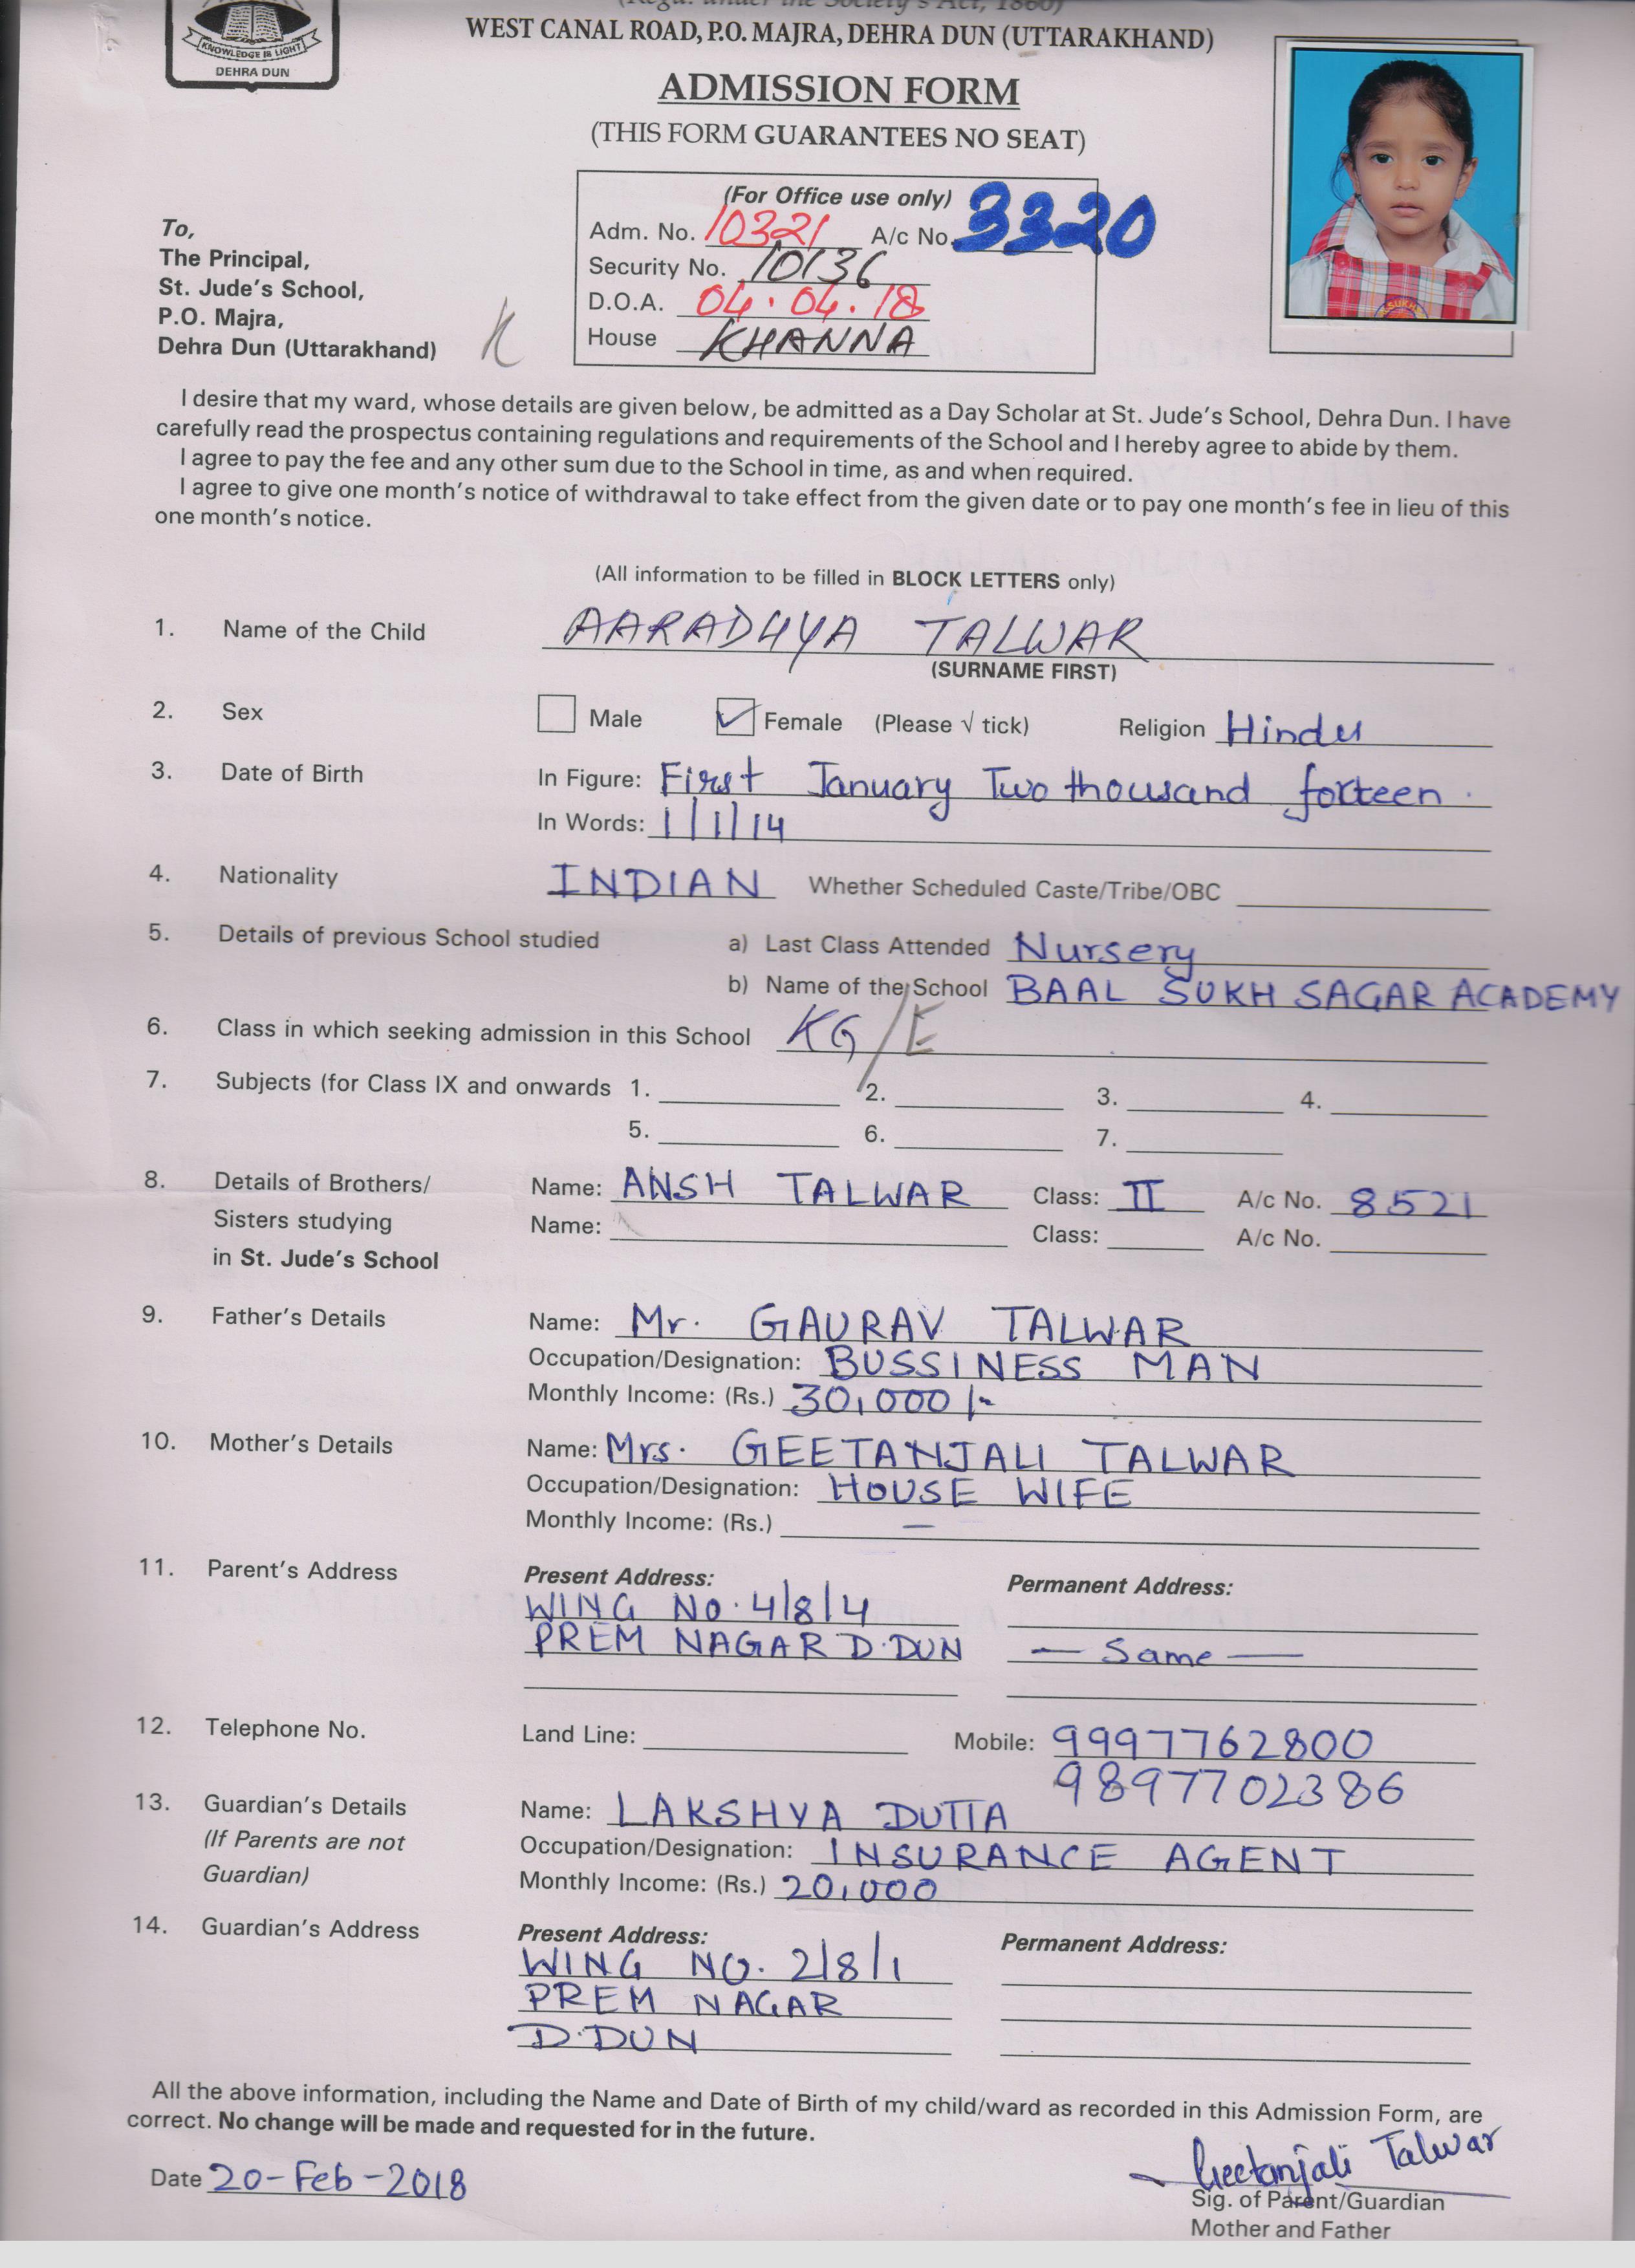 KNOWLEDGE IS LIGHT
DEHRA DUN
(Regd. under the Society's Act, 1860)
WEST CANAL ROAD, P.O. MAJRA, DEHRA DUN (UTTARAKHAND)
ADMISSION FORM
(THIS FORM GUARANTEES NO SEAT)
(For Office use only)
Adm. No. 10321 A/c No. 3320
Security No. 10136
D.O.A. 04.04.18
House KHANNA
SUKH
To,
The Principal,
St. Jude's School,
P.O. Majra,
Dehra Dun (Uttarakhand)
I desire that my ward, whose details are given below, be admitted as a Day Scholar at St. Jude's School, Dehra Dun. I have
carefully read the prospectus containing regulations and requirements of the School and I hereby agree to abide by them.
I agree to pay the fee and any other sum due to the School in time, as and when required.
I agree to give one month's notice of withdrawal to take effect from the given date or to pay one month's fee in lieu of this
one month's notice.
(All information to be filled in BLOCK LETTERS only)
1. Name of the Child AARADHYA TALWAR
(SURNAME FIRST)
2. Sex Male Female (Please √ tick) Religion Hindu
3. Date of Birth In Figure: First January Two thousand forteen.
In Words: 1/1/14
4. Nationality INDIAN Whether Scheduled Caste/Tribe/OBC
5. Details of previous School studied a) Last Class Attended Nursery
b) Name of the School BAAL SUKH SAGAR ACADEMY
6. Class in which seeking admission in this School KG/E
7. Subjects (for Class IX and onwards 1. 2. 3. 4.
5. 6. 7.
8. Details of Brothers/ Name: ANSH TALWAR Class: II A/c No. 8521
Sisters studying Name: Class: A/c No.
in St. Jude's School
9. Father's Details Name: Mr. GAURAV TALWAR
Occupation/Designation: BUSSINESS MAN
Monthly Income: (Rs.) 30,000/-
10. Mother's Details Name: Mrs. GEETANJALI TALWAR
Occupation/Designation: HOUSE WIFE
Monthly Income: (Rs.) —
11. Parent's Address Present Address: Permanent Address:
WING NO. 4/8/4
PREM NAGAR D.DUN — Same —
12. Telephone No. Land Line: Mobile: 9997762800
9897702386
13. Guardian's Details Name: LAKSHYA DUTTA
(If Parents are not Occupation/Designation: INSURANCE AGENT
Guardian) Monthly Income: (Rs.) 20,000
14. Guardian's Address Present Address: Permanent Address:
WING NO. 2/8/1
PREM NAGAR
D.DUN
All the above information, including the Name and Date of Birth of my child/ward as recorded in this Admission Form, are
correct. No change will be made and requested for in the future.
Geetanjali Talwar
Date 20-Feb-2018
Sig. of Parent/Guardian
Mother and Father